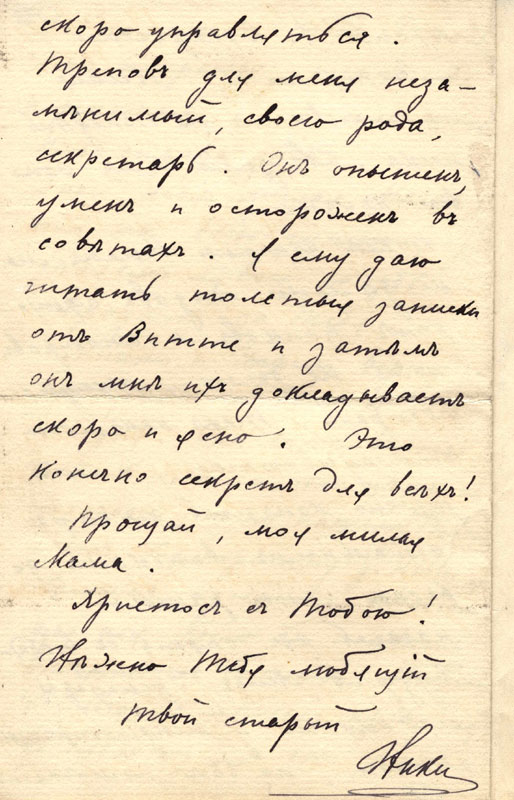 скоро управляться.
Треповъ для меня неза-
мѣнимый, своего рода,
секретарь. Онъ опытенъ,
уменъ и остороженъ въ
совѣтахъ. Я ему даю
читать толстыя записки
отъ Витте и затѣмъ
онъ мнѣ ихъ докладываетъ
скоро и ясно. Это
конечно секретъ для всѣхъ!
Прощай, моя милая
Мама.
Христосъ съ Тобою!
Нѣжно Тебя любящій
твой старый
Ники